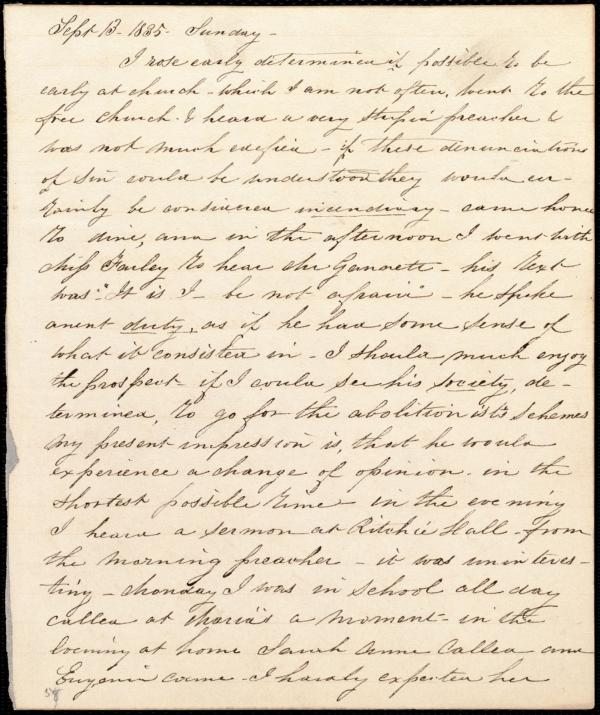 Sept 13 - 1835 - Sunday -
I rose early determined if possible to be
early at church - which I am not often, went to the
free church & heard a very stupid preacher &
was not much edified - if these denunciations
of sin could be understood they would cer-
tainly be considered incendiary - came home
to dine, and in the afternoon I went with
Miss Farley to hear Mr Gannett - his text
was "It is I - be not afraid" - he spoke
anent duty, as if he had some sense of
what it consisted in - I should much enjoy
the prospect - if I could see his society, de-
termined, to go for the abolitionists schemes
my present impression is, that he would
experience a change of opinion. in the
shortest possible time - in the evening
I heard a sermon at Ritchie Hall - from
the morning preacher - it was uninteres-
ting - Monday I was in school all day
called at Maria's a moment - in the
Evening at home Sarah Anne called and
Eugenia came - I hardly expected her